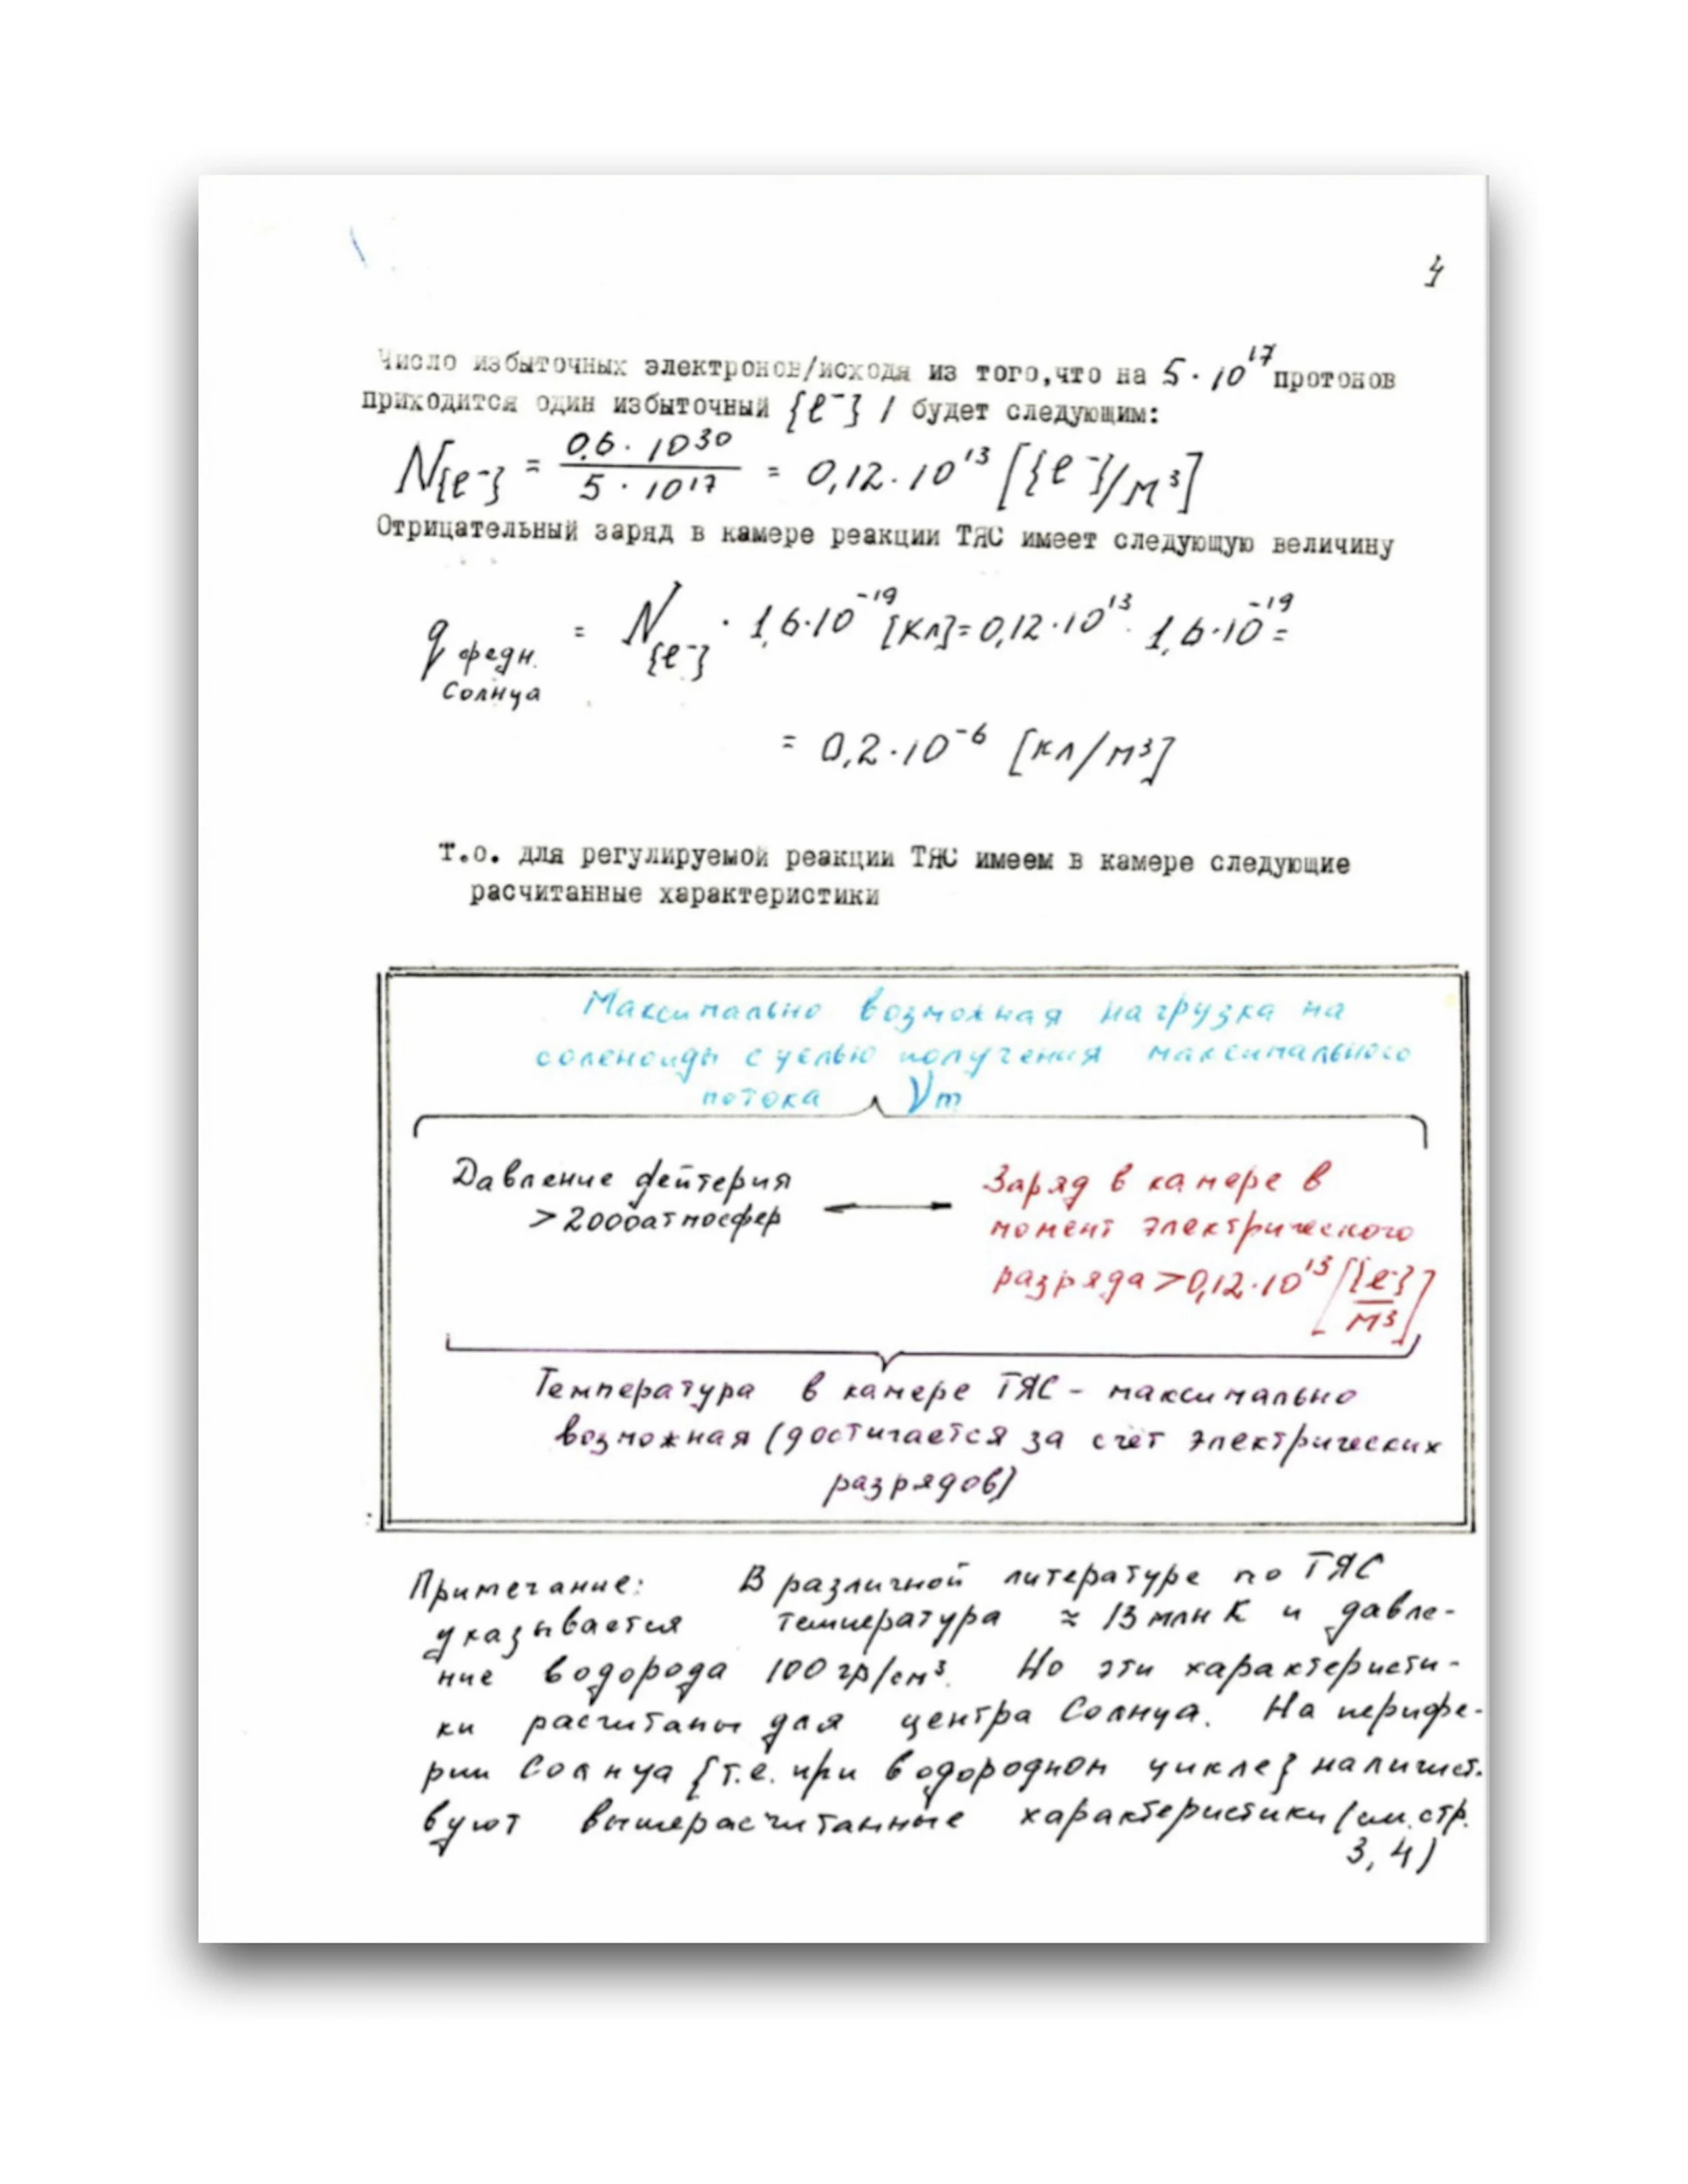 4
Число избыточных электронов/исходя из того,что на 5·10¹⁷ протонов
приходится один избыточный {e⁻} / будет следующим:
N{e⁻} = 0,6·10³⁰ / 5·10¹⁷ = 0,12·10¹³ [{e⁻}/м³]
Отрицательный заряд в камере реакции ТЯС имеет следующую величину
q = N{e⁻} · 1,6·10⁻¹⁹ [Кл] = 0,12·10¹³ · 1,6·10⁻¹⁹ =
средн.
Солнца
= 0,2·10⁻⁶ [кл/м³]
т.о. для регулируемой реакции ТЯС имеем в камере следующие
расчитанные характеристики
Максимально возможная нагрузка на
соленоиды с целью получения максимального
потока Vm
Давление дейтерия
>2000атмосфер
Заряд в камере в
момент электрического
разряда >0,12·10¹³ [{e⁻}/м³]
Температура в камере ТЯС - максимально
возможная (достигается за счет электрических
разрядов)
Примечание: В различной литературе по ТЯС
указывается температура ≈ 13 млн К и давле-
ние водорода 100 гр/см³. Но эти характеристи-
ки расчитаны для центра Солнца. На перифе-
рии Солнца {т.е. при водородном цикле} наличест.
вуют вышерасчитанные характеристики (см. стр.
3, 4)